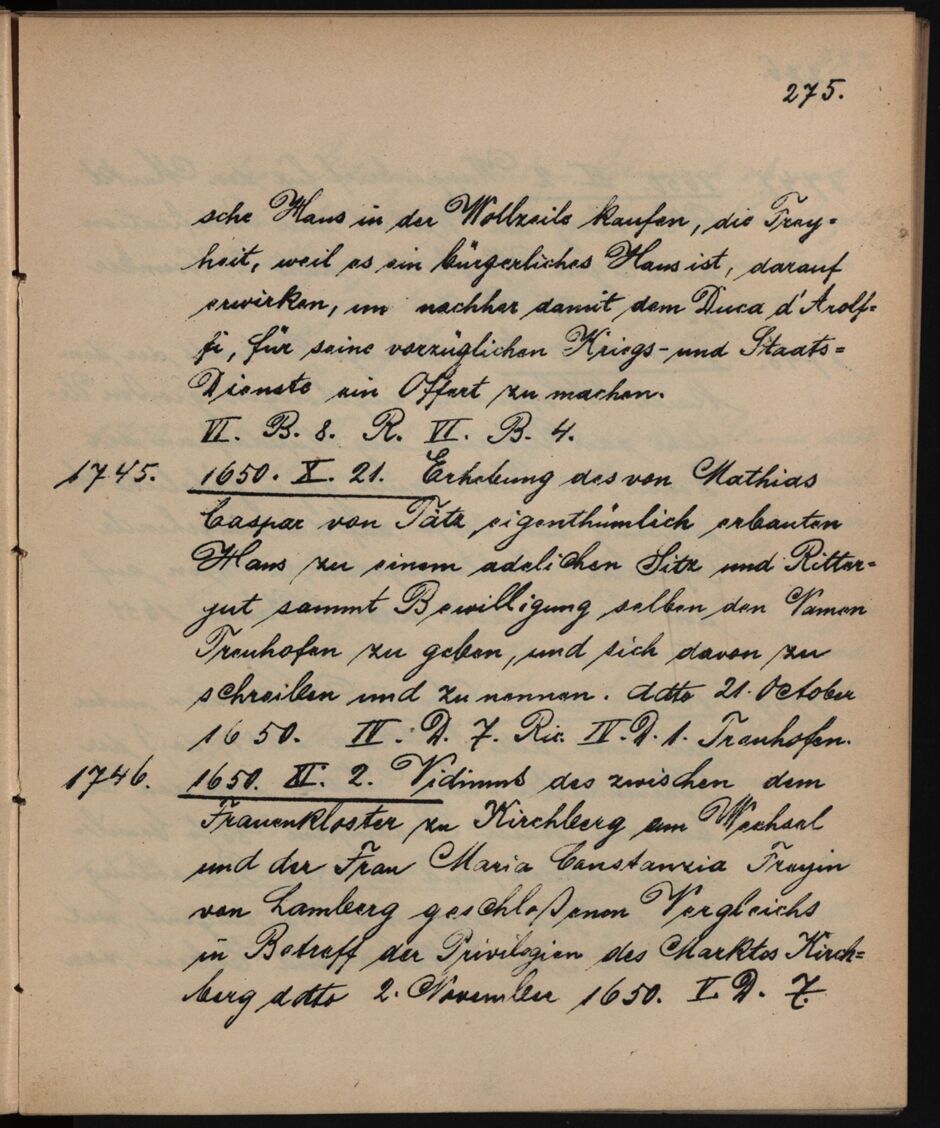 275.
sche Haus in der Wollzeile kaufen, die Frey=
heit, weil es ein bürgerliches Haus ist, darauf
erwirken, um nachher damit dem Duca d'Arolf=
fi, für seine vorzüglichen Kriegs- und Staats=
Dienste ein Offert zu machen.
VI. B. 8. R. VI. B. 4.
1745. 1650. X. 21. Erhebung des von Mathias
Caspar von Tätz eigenthümlich erbauten
Haus zu einem adelichen Sitz und Ritter=
gut sammt Bewilligung selben den Namen
Treuhofen zu geben, und sich davon zu
schreiben und zu nennen. ddto 21. October
1650. IV. D. 7. Ric. IV. D. 1. Treuhofen.
1746. 1650. XI. 2. Vidimus des zwischen dem
Frauenkloster zu Kirchberg am Wechsel
und der Frau Maria Constanzia Freyin
von Lamberg geschloßenen Vergleichs
in Betreff der Privilegien des Marktes Kirch=
berg ddto 2. November 1650. V. D. 7.